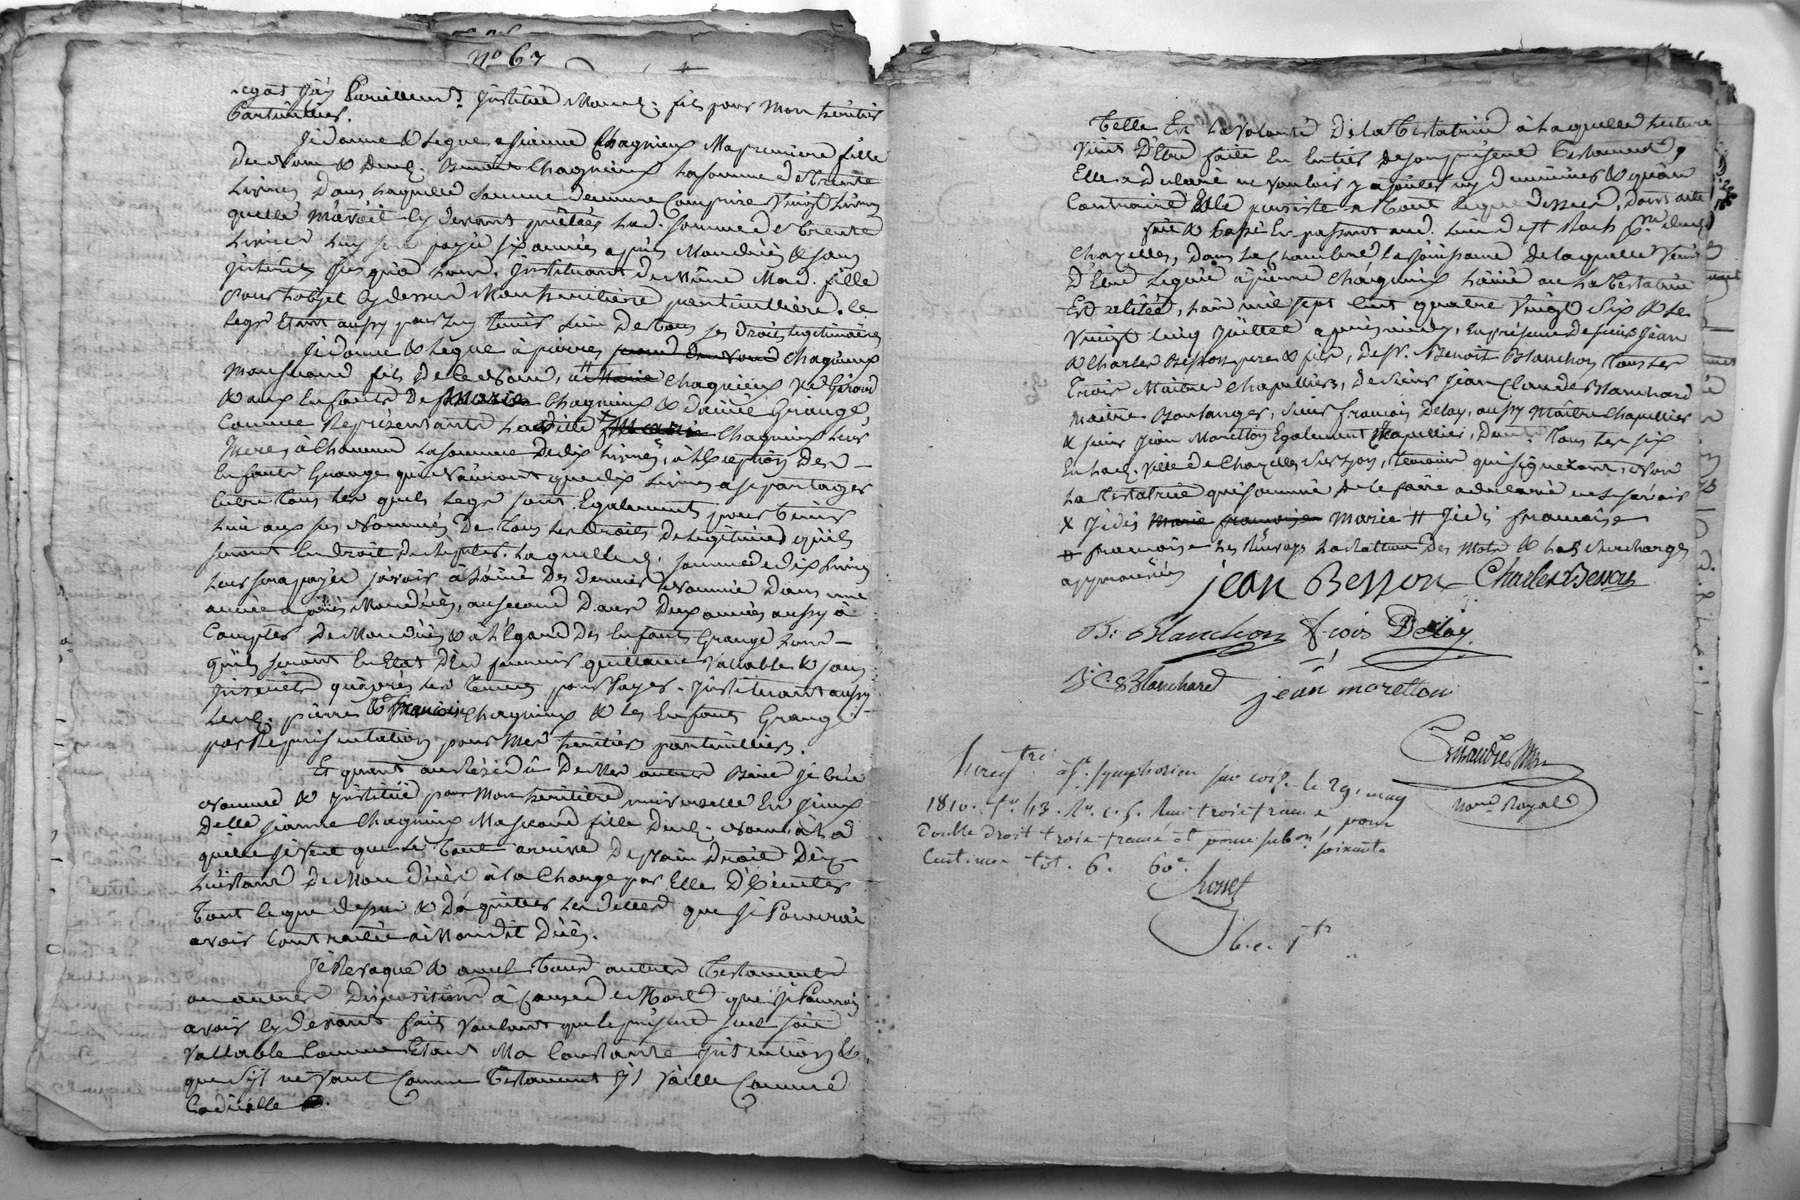 No 67
Legat j'ay institué Mond. fils pour Mon heritier
Particullier.
Je donne & Legue a jeanne Chagnieux Ma premiere fille
Du Nom & Dud. Benoit Chagnieux La somme de trente
Livres Dans Laquelle Somme demeure Comprise Vingt Livres
quelle M'avoit cy devant prêtées Lad. Somme de trente
Livres Luy sera payée six années après Mon décès & sans
jnterêts jusqu'a Lors. jnstituant De Même Mad. fille
Pour L'objet cy dessus Mon heritière particulliere. Le
Legs Etant aussy pour Luy tenir Lieu De tous ses Droits Legitimaires
Je donne & Legue à pierre Chagnieux
Mon second fils De Ce Nom, à Chagnieux Ve Giraud
& aux Enfants De Marie Chagnieux & D'aimé Grange
Comme Représentants Chagnieux Leur
Mere, à Chacun La somme De dix Livres, a L'Exception Des
Enfants Grange qui N'auront que dix Livres a se partager
Entre tous Les quels Legs sont Egalement pour tenir
Lieu aux sus Nommés De tous Les droits De Legitime qu'ils
seront En droit De Repeter. Laquelle d. somme de dix Livres
Leur sera payée, sçavoir à L'ainé Des Derniers Nommés Dans une
année après Mon décès, au second Dans Deux années aussy à
Compter De Mon décès & à L'Egard Des Enfants Grange Lors
qu'ils seront En Etat D'En fournir quittance Vallable & sans
jnterêts qu'après Les termes pour Payer. jnstituant aussy
Lesd. pierre & Chagnieux & Les Enfants Grange
par Représentation pour Mes heritiers particulliers.
Et quant au Résidû De Mes autres Biens je les
Nomme & jnstitué pour Mon heritière universelle En jceux
Delle jeanne Chagnieux Ma seconde fille Dud. Nom à La
quelle Je Veut que Le tout arrive De plain Droit Dès
L'instant De Mon Décès à la Charge par Elle D'Executer
tout Ce que dessus & D'aquitter Les Dettes que je Pourrai
avoir Contractée à Mondit Décès.
Je Revoque & annul tous autres Testaments
ou autres Dispositions à Cause de Mort que je Pourrai
avoir Cy devant fait Voulant que Le présent seul soit
Vallable Comme Etant Ma Constante jntention &
que s'il ne Vaut Comme Testament qu'il Vaille Comme
Codicille
Telle Est La volonté De La Testatrice à Laquelle Lecture
Vient D'Etre faite En Entier De son présent Testament,
Elle a déclaré ne vouloir y ajouter ny diminuer & qu'au
Contraire Elle persiste a tout Ce que dessus, Dont acte
fait & Passé En
Chazelles, Dans La Chambre La joüissance De Laquelle Vient
D'Etre Leguée à pierre Chagnieux L'ainé ou La Testatrice
Est alitée, L'an mil sept Cent quatre Vingt Six & Le
Vingt Cinq Juillet après midy, En présence De sieurs Jean
& Charles Besson pere & fils, De Sr. Benoît Blanchon tous Les
Trois Maîtres Chapelliers, De sieur Jean Claude Blanchard
Maître Boulanger, Sieur francois Delay, aussy Maître Chapellier
& sieur Jean Moretton Egalement Chapellier, Demts tous Les six
En Lad. Ville De Chazelles Sur Lyon, temoins qui signeront, Non
La Testatrice qui sommée De Le faire a déclaré ne Le scavoir
X Je dis Marie # Je dis francoise
francoise Les Renvoys La rature Des Mots & La Surcharge
approuvées
jean Besson Charles Besson
B: Blanchon fcois Delay
J. C. Blanchard jean moretton
Nore Royal
Enregtré à St. symphorien sur coise le 29. may
1810. fo. 43. Ro. c. 5. Reçu trois francs, pour
double droit trois francs et pour subon, soixante
Centimes tot. 6. 60c.